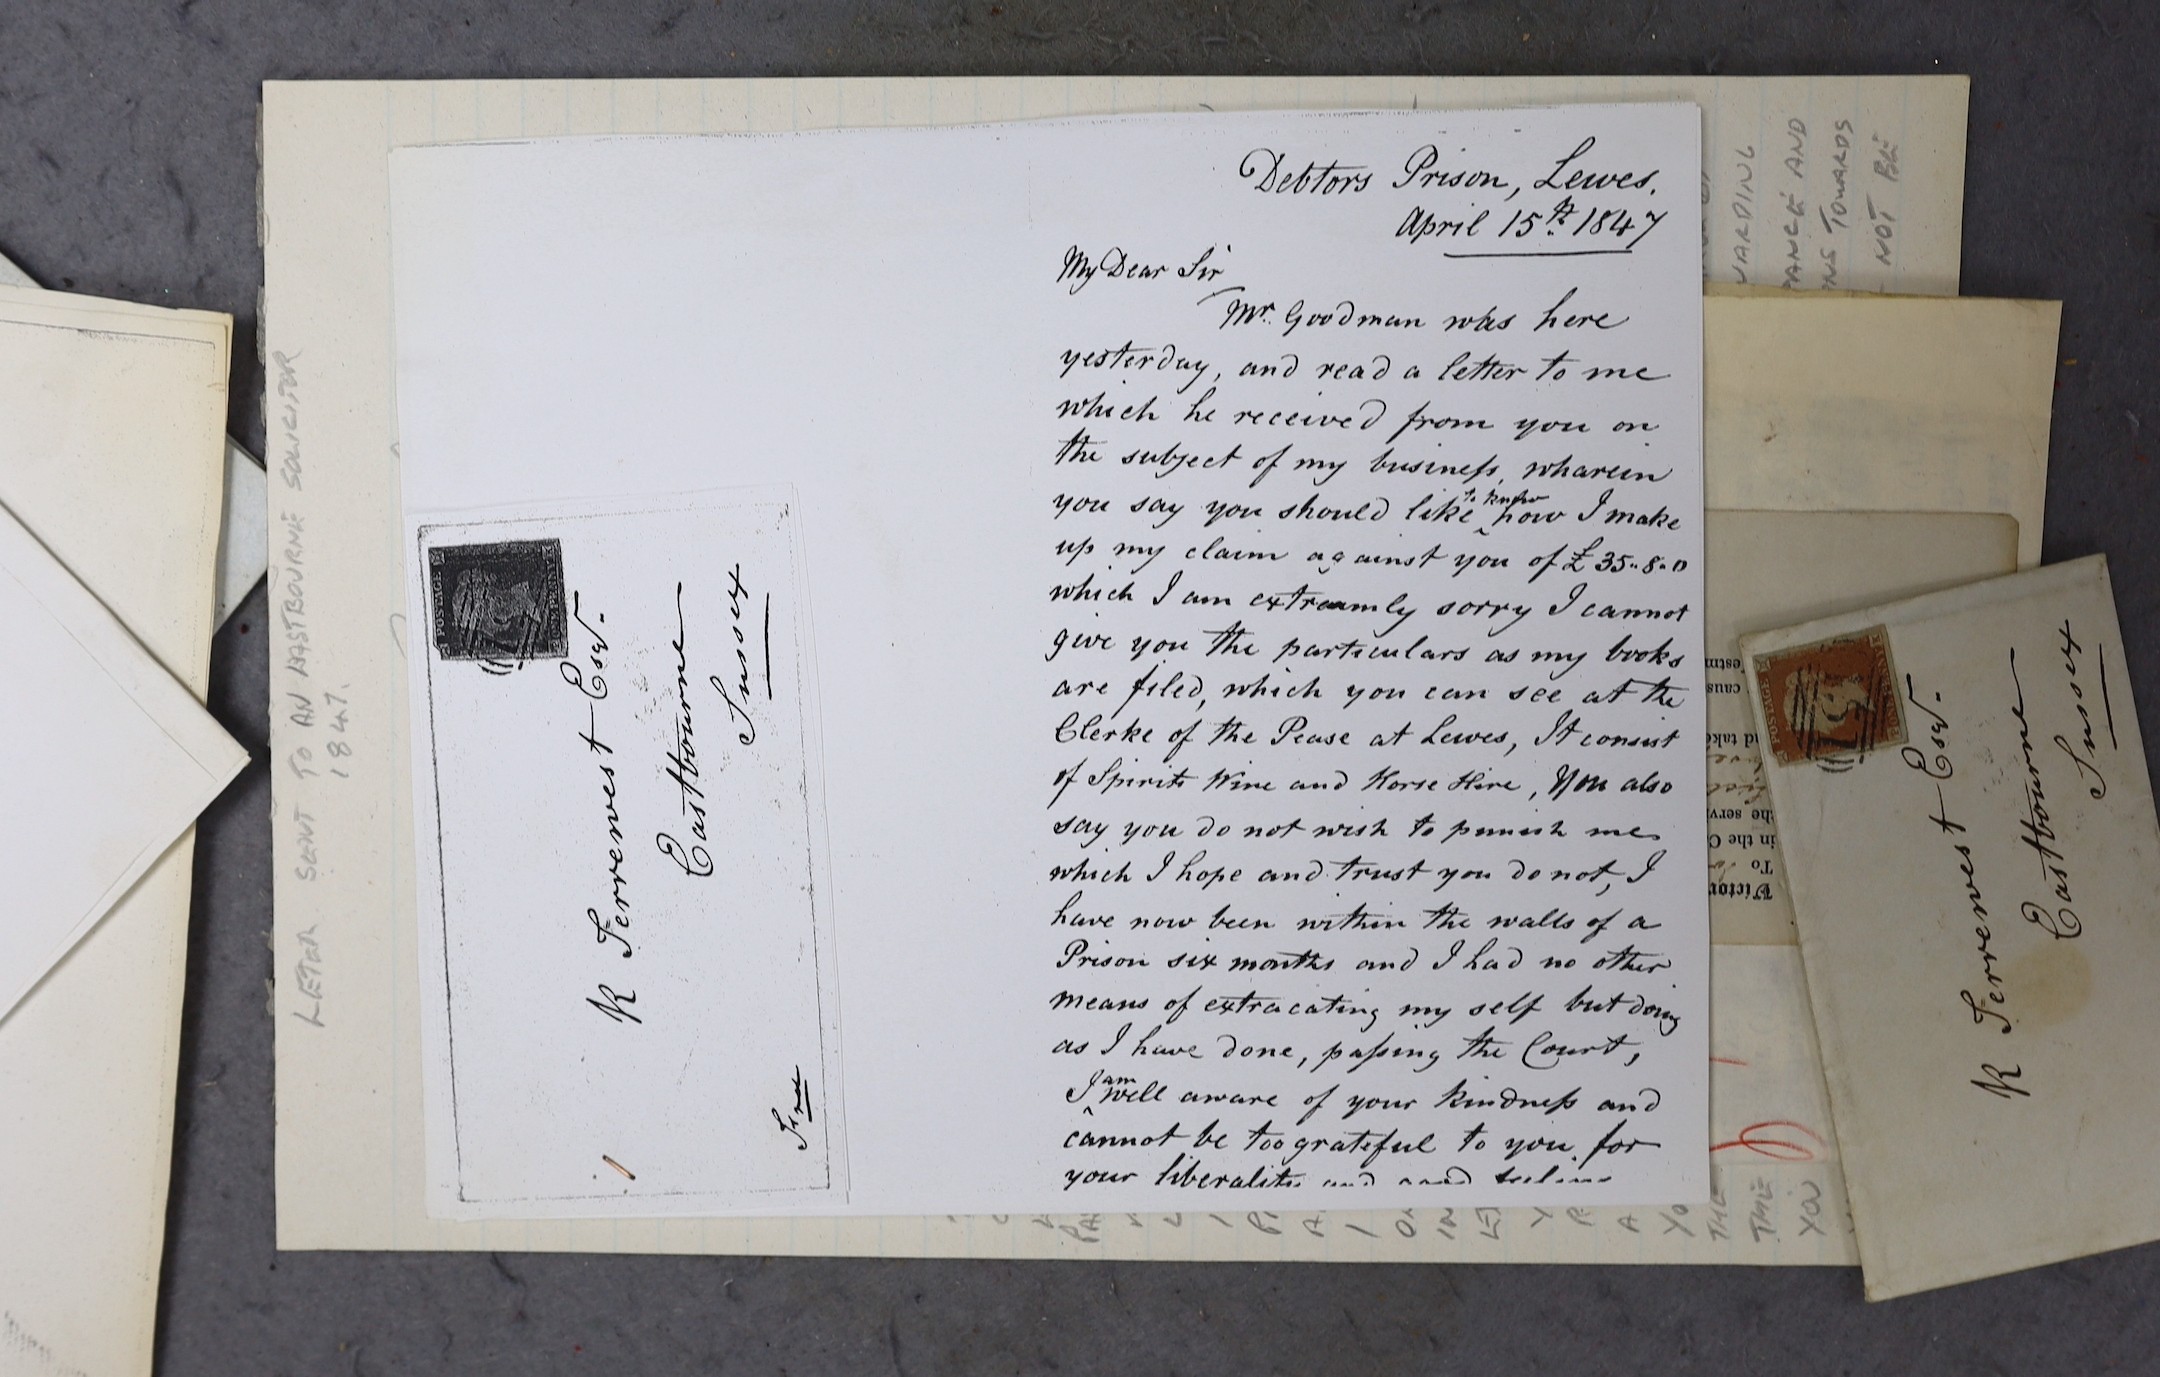 Debtors Prison, Lewes.
April 15th. 1847
My Dear Sir
Mr. Goodman was here
yesterday, and read a letter to me
which he received from you on
the subject of my business, wharein
you say you should like to know how I make
up my claim against you of £35-8-0
which I am extreamly sorry I cannot
give you the particulars as my books
are filed, which you can see at the
Clerke of the Pease at Lewes, It consist
of Spirits Wine and Horse Hire, You also
say you do not wish to punish me
which I hope and trust you do not, I
have now been within the walls of a
Prison six months and I had no other
means of extracating my self but doing
as I have done, passing the Court,
I am well aware of your kindness and
cannot be too grateful to you for
your liberality and good feeling
POSTAGE
ONE PENNY
R Terrewest Esqr.
Eastbourne
Sussex
LETTER SENT TO AN EASTBOURNE SOLICITOR
1847.
WARDING
AND
TOWARDS
NOT BE
POSTAGE
R Terrewest Esqr.
Eastbourne
Sussex
To
in the
THE
THE
YOU